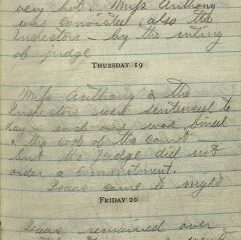 very hot. Miss Anthony
was convicted, also the
Inspectors — by the ruling
of judge
THURSDAY 19
Miss Anthony & the
Inspectors were sentenced to
day — each one was fined
& the cost of the court —
but the Judge did not
order a commitment.
Isaac came to night
FRIDAY 20
Isaac remained over